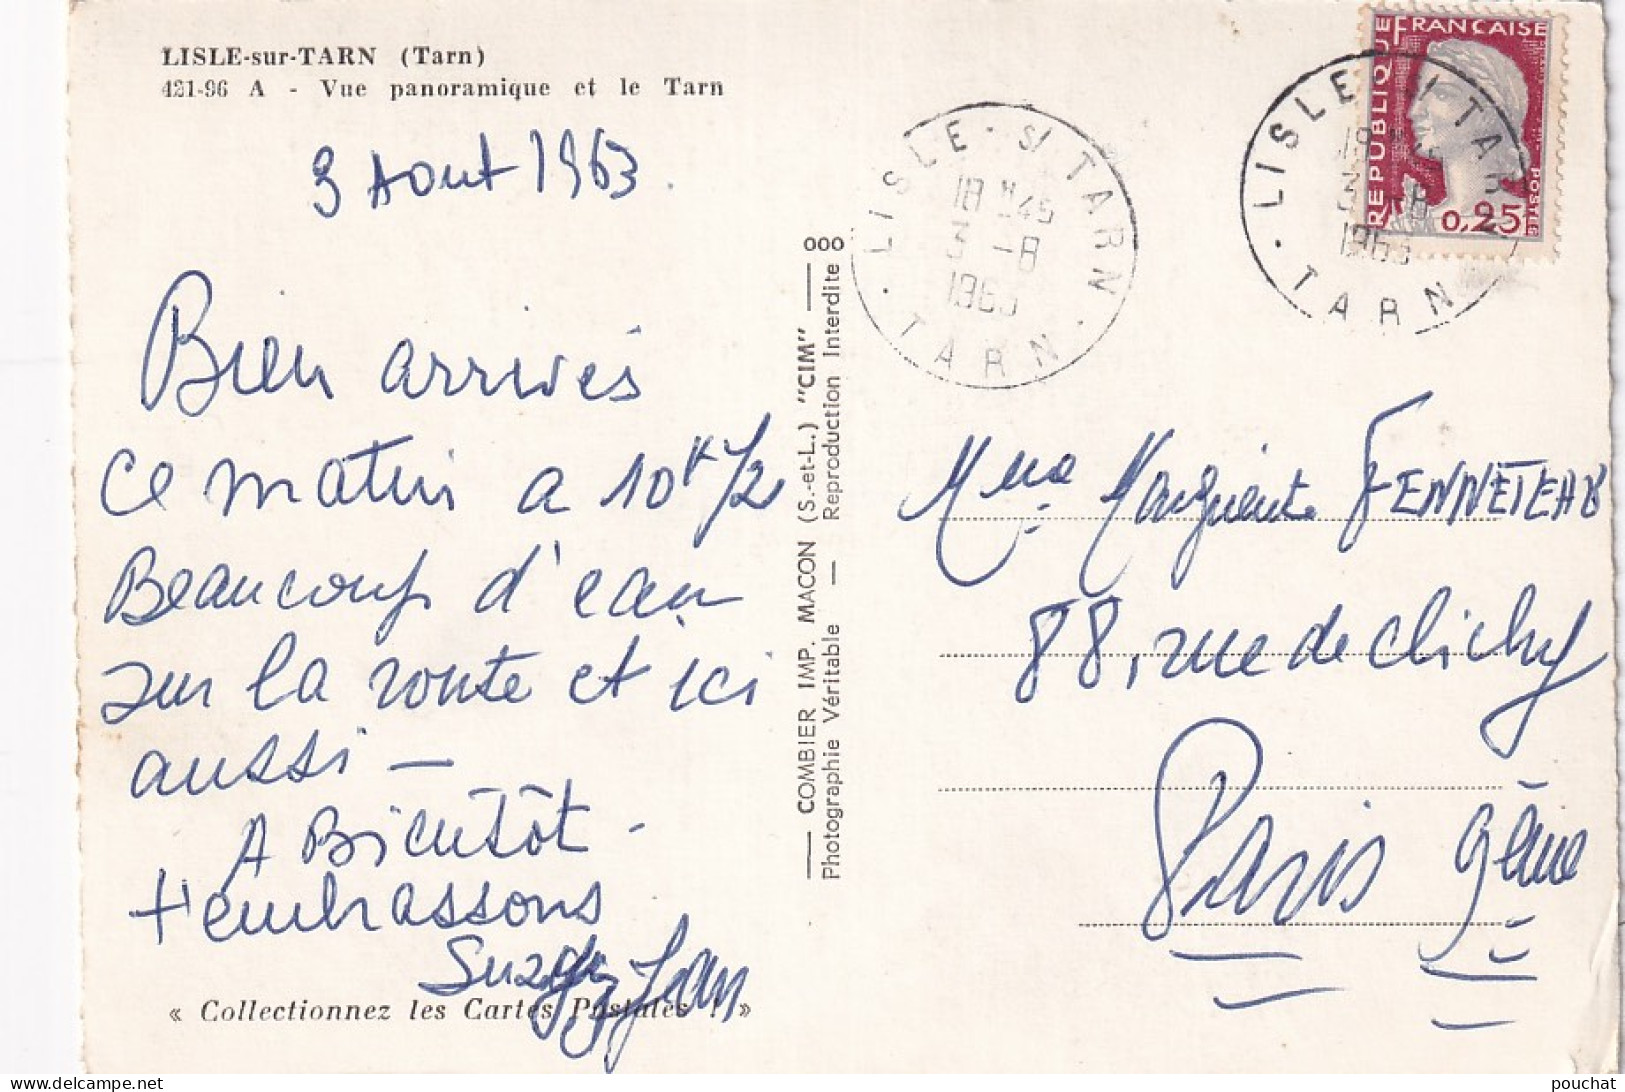 LISLE-sur-TARN (Tarn)
421-96 A - Vue panoramique et le Tarn
3 Aout 1963.
Bien arrivés
ce matin a 10h 1/2
Beaucoup d'eau
sur la route et ici
aussi —
A Bientôt -
t'embrassons
« Collectionnez les Cartes Postales ! »
COMBIER IMP. MACON (S.-et-L.) "CIM" 000
Photographie Véritable — Reproduction Interdite
LISLE - S/ TARN
18 H45
3 -8
1963
· TARN ·
LISLE S/ TARN
18 H45
3 -8
1963
· TARN
REPUBLIQUE FRANÇAISE
POSTES
0,25
Mme Marguerite FENNETEAU
88, rue de Clichy
Paris 9ème